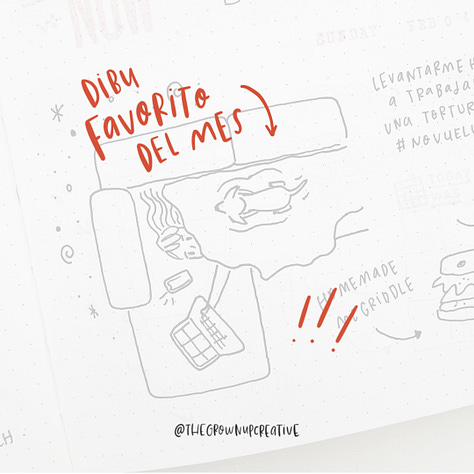 NOW
SUNDAY FEB
DIBU
FAVORITO
DEL MES
LEVANTARME
A TRABAJA
UNA TORTUR
#NOVUEL
HOMEMADE
MC GRIDDLE
@THEGROWNUPCREATIVE